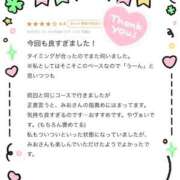 Thank you!
4.5
今回も良すぎました！
タイミングが合ったのでまた伺いました。
※私としてはそこそこのペースなので「うーん」と思いつつも
前回と同じコースで行きましたが
正直言うと、みおさんの指責めにはまってます。
気持ち良すぎるのです…おすすめです。ヤヴぁいです。
(もちろん褒めてる)
私もついついといった状態になっていましたが、
みおさんも楽しんでいただけたようでよかったです。